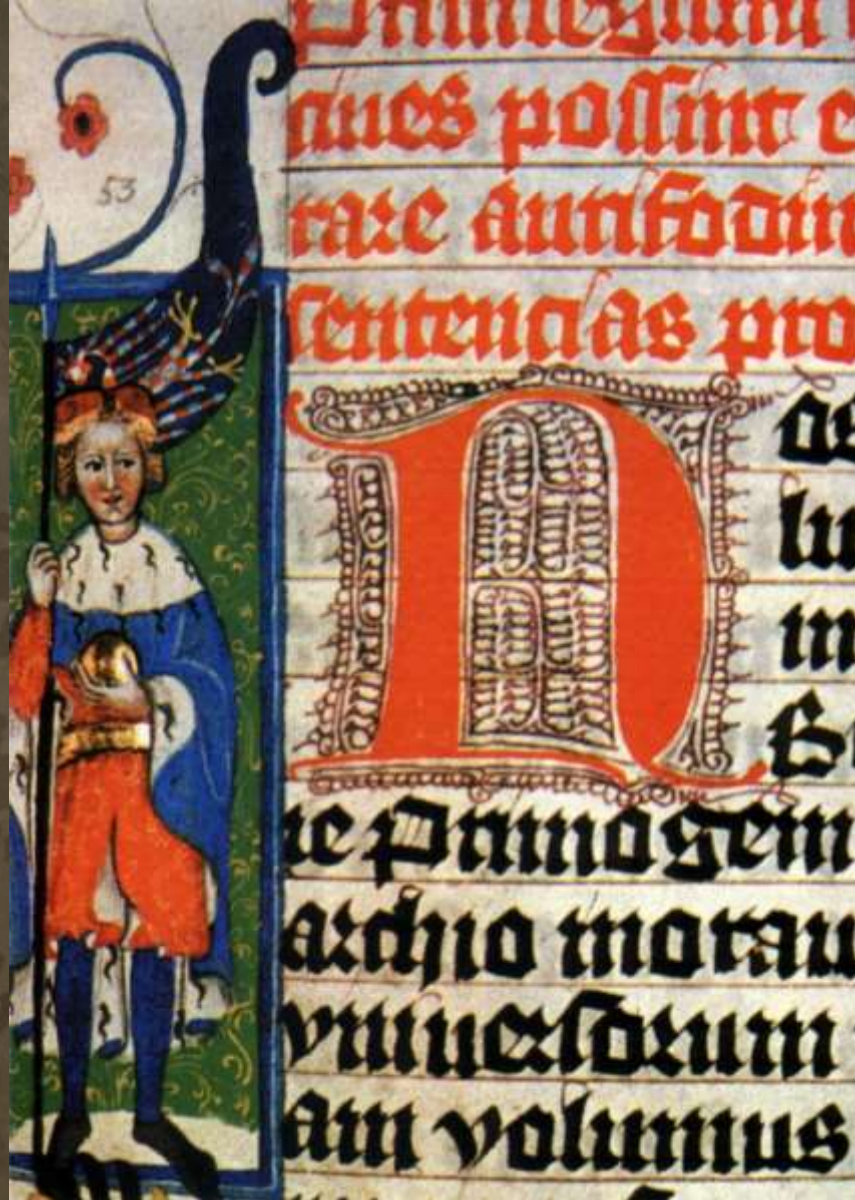 Priuilegium
ciues possint e
rare aurifodin
sentencias pro
53
N os
lu
in
B
ne Primogeni
archio morau
vniuersorum
am volumus